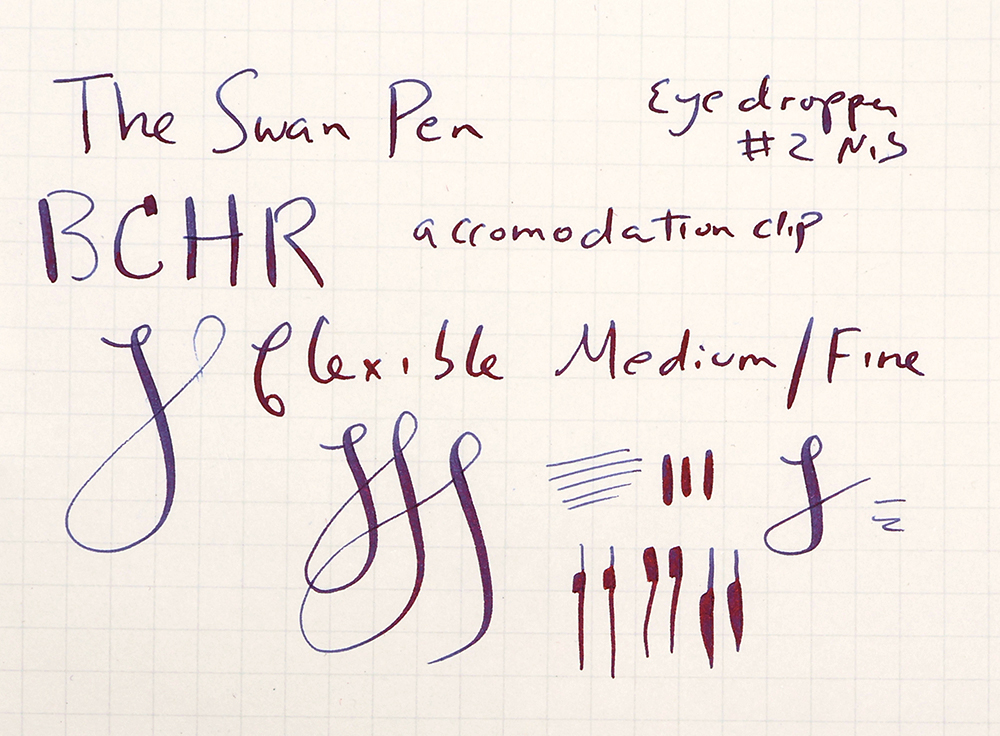 The Swan Pen
Eyedropper
#2 Nib
BCHR
accomodation clip
flexible Medium/Fine